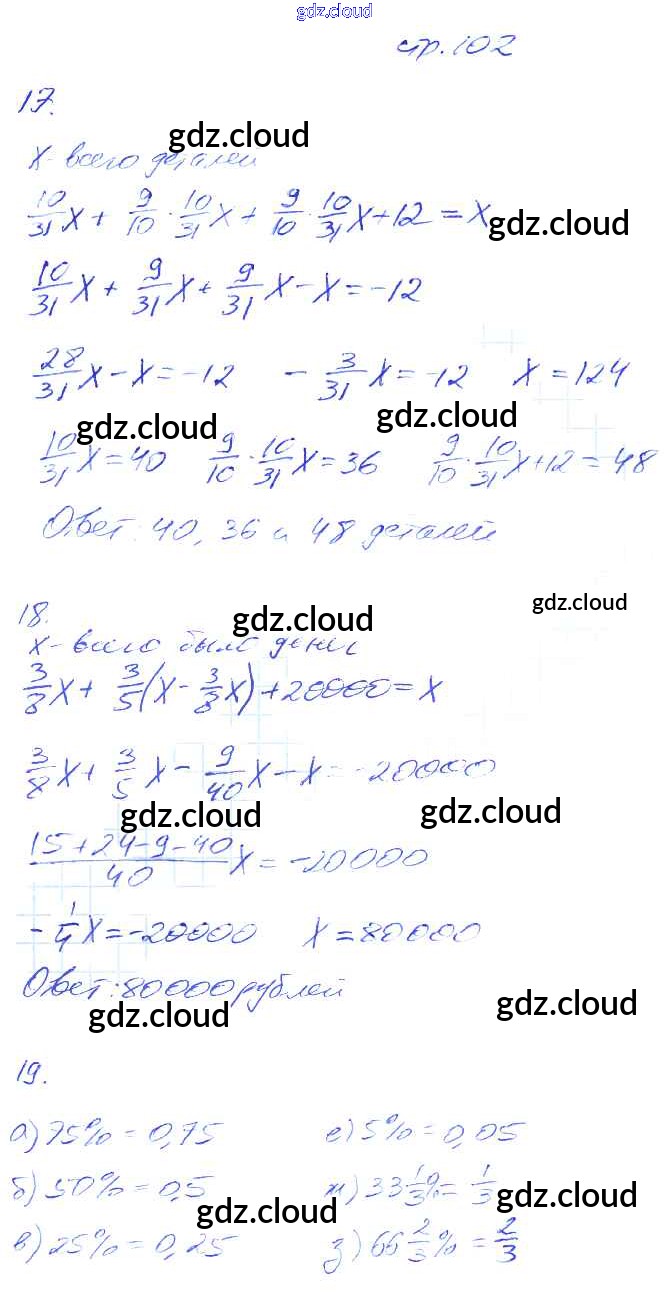 gdz.cloud
стр.102
17.
gdz.cloud
x - всего деталей
10/31 x + 9/10 · 10/31 x + 9/10 · 10/31 x + 12 = x
gdz.cloud
10/31 x + 9/31 x + 9/31 x - x = -12
28/31 x - x = -12   - 3/31 x = -12   x = 124
gdz.cloud gdz.cloud
10/31 x = 40   9/10 · 10/31 x = 36   9/10 · 10/31 x + 12 = 48
Ответ: 40, 36 и 48 деталей
gdz.cloud
18.
gdz.cloud
x - всего было денег
3/8 x + 3/5 (x - 3/8 x) + 20000 = x
3/8 x + 3/5 x - 9/40 x - x = -20000
gdz.cloud gdz.cloud
15+24-9-40/40 x = -20000
- 1/4 x = -20000   x = 80000
Ответ: 80000 рублей
gdz.cloud gdz.cloud
19.
а) 75% = 0,75   е) 5% = 0,05
б) 50% = 0,5   ж) 33 1/3 % = 1/3
gdz.cloud gdz.cloud
в) 25% = 0,25   з) 66 2/3 % = 2/3